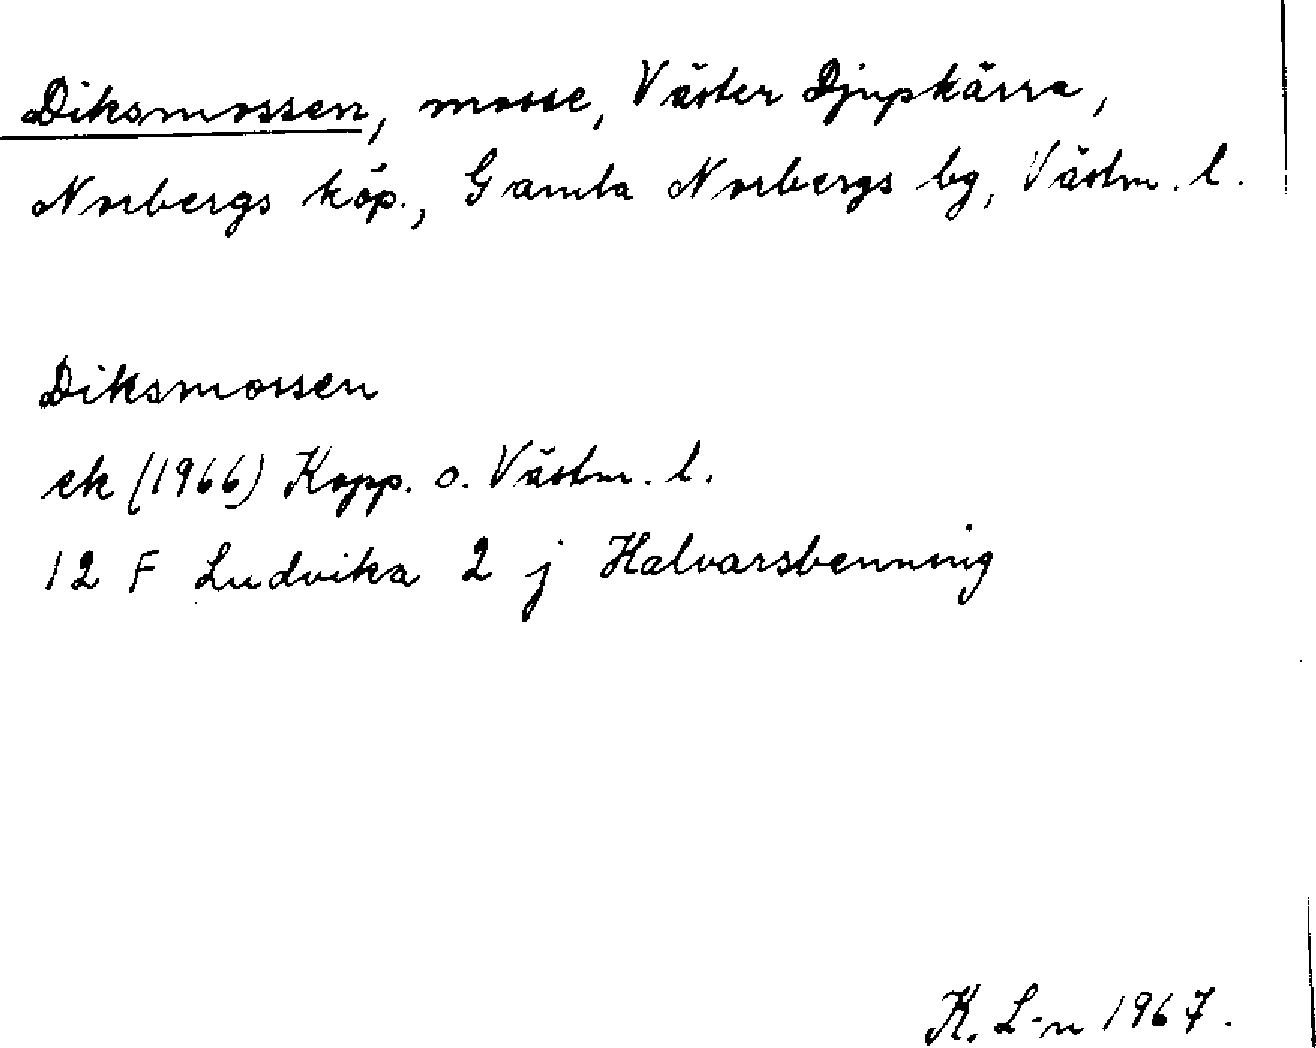 Diksmossen, mosse, Väster Djupkärra,
Norbergs köp., Gamla Norbergs bg, Västm. l.
Diksmossen
ek (1966) Kopp. o. Västm. l.
12 F Ludvika 2 j Halvarsbenning
K. L-n 1967.